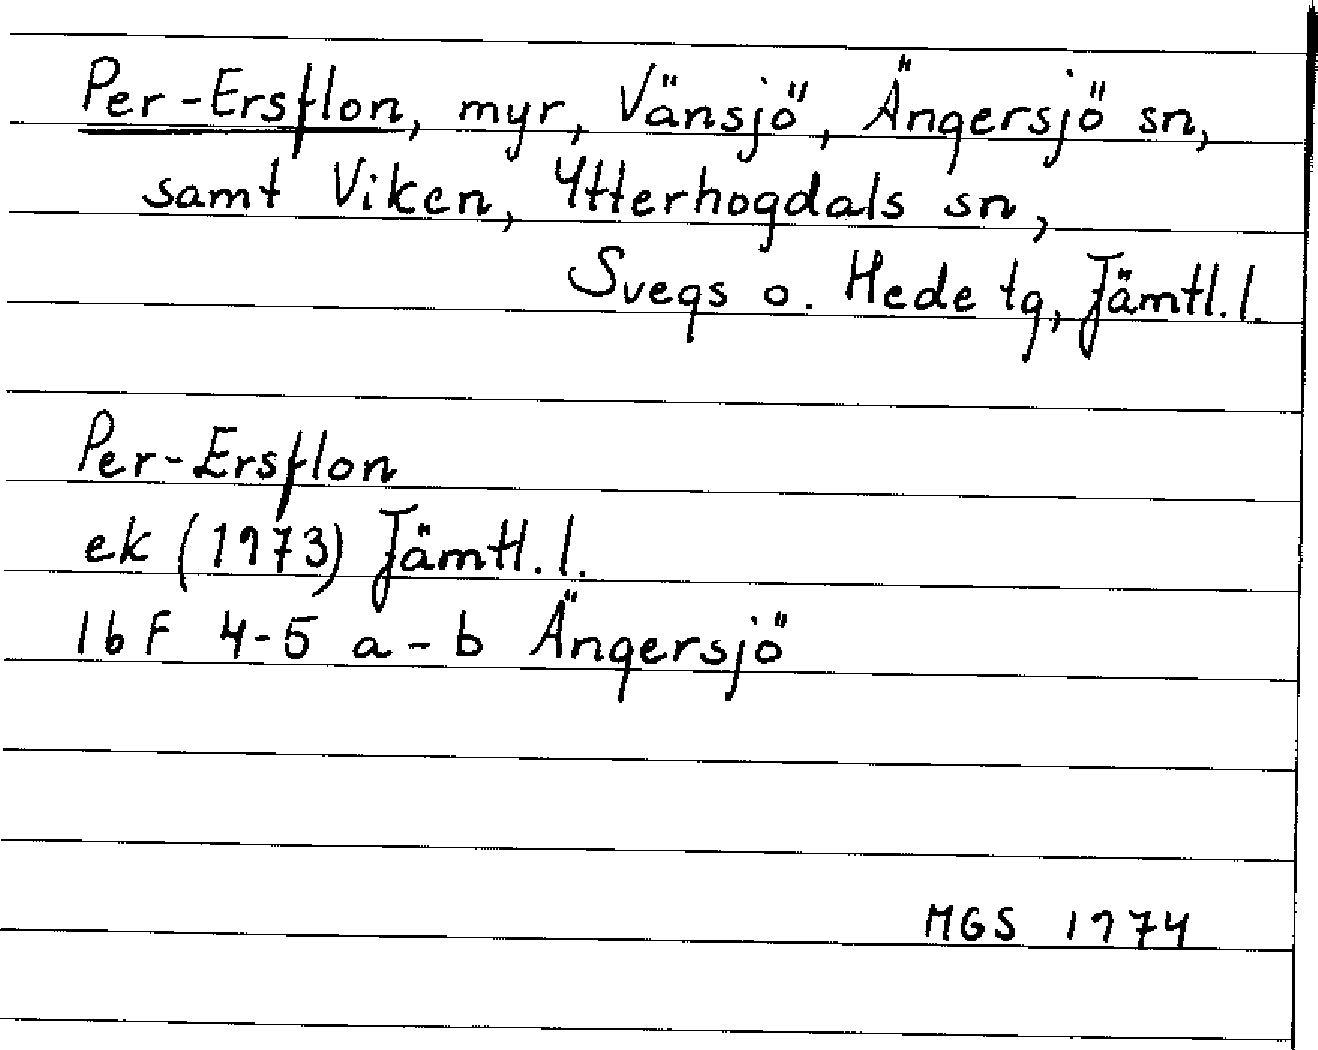 Per-Ersflon, myr, Vänsjö, Ängersjö sn,
samt Viken, Ytterhogdals sn,
Svegs o. Hede tg, Jämtl. l.
Per-Ersflon
ek (1973) Jämtl. l.
16 F 4-5 a-b Ängersjö
MGS 1974